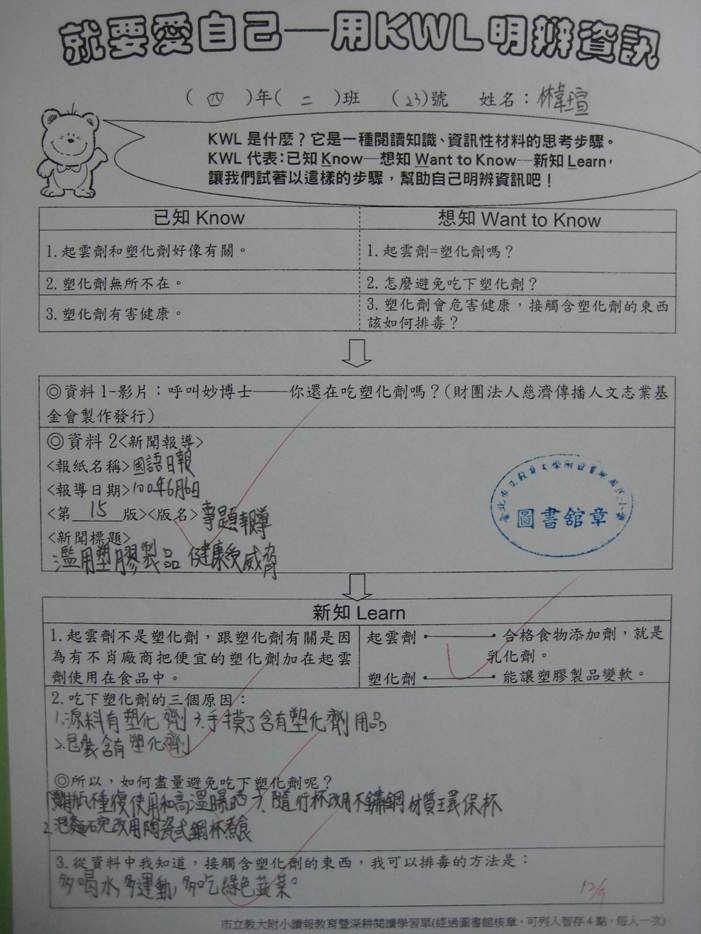 就要愛自己—用KWL明辨資訊
（四）年（二）班 （23）號 姓名：瑋瑄
KWL 是什麼？它是一種閱讀知識、資訊性材料的思考步驟。
KWL 代表：已知 Know—想知 Want to Know—新知 Learn，
讓我們試著以這樣的步驟，幫助自己明辨資訊吧！
已知 Know
想知 Want to Know
1.起雲劑和塑化劑好像有關。
1.起雲劑=塑化劑嗎？
2.塑化劑無所不在。
2.怎麼避免吃下塑化劑？
3.塑化劑有害健康。
3.塑化劑會危害健康，接觸含塑化劑的東西
該如何排毒？
◎資料 1-影片：呼叫妙博士——你還在吃塑化劑嗎？(財團法人慈濟傳播人文志業基
金會製作發行)
◎資料 2<新聞報導>
<報紙名稱>國語日報
<報導日期>100年6月6日
<第15版><版名>專題報導
<新聞標題>
濫用塑膠製品 健康受威脅
圖書館章
新知 Learn
1.起雲劑不是塑化劑，跟塑化劑有關是因
為有不肖廠商把便宜的塑化劑加在起雲
劑使用在食品中。
起雲劑 合格食物添加劑，就是
乳化劑。
塑化劑 能讓塑膠製品變軟。
2.吃下塑化劑的三個原因：
1.源料有塑化劑 3.手摸了含有塑化劑用品
2.包裝含有塑化劑
◎所以，如何盡量避免吃下塑化劑呢？
瓶種復使用和高溫曝晒 3.隨行杯改用不鏽鋼材質環保杯
2.泡麵碗改用陶瓷或鋼杯煮食
3.從資料中我知道，接觸含塑化劑的東西，我可以排毒的方法是：
多喝水,多運動,多吃綠色蔬菜。
12/9
市立教大附小讀報教育暨深耕閱讀學習單(經過圖書館核章，可列入智存 4 點，每人一次)